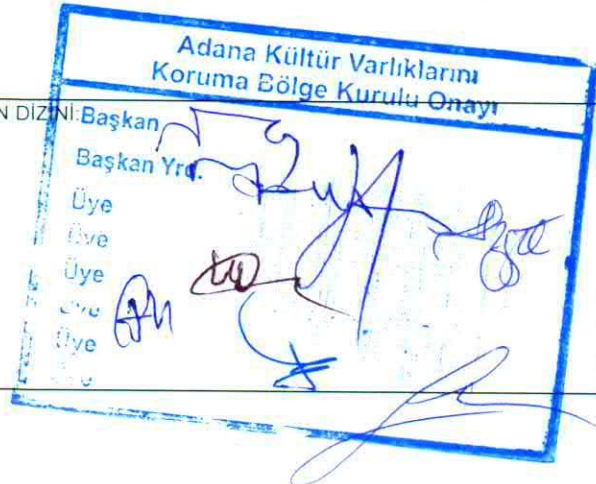 Adana Kültür Varlıklarını
Koruma Bölge Kurulu Onayı
N DİZİNİ:Başkan
Başkan Yrd.
Üye
Üye
Üye
Üye
Üye